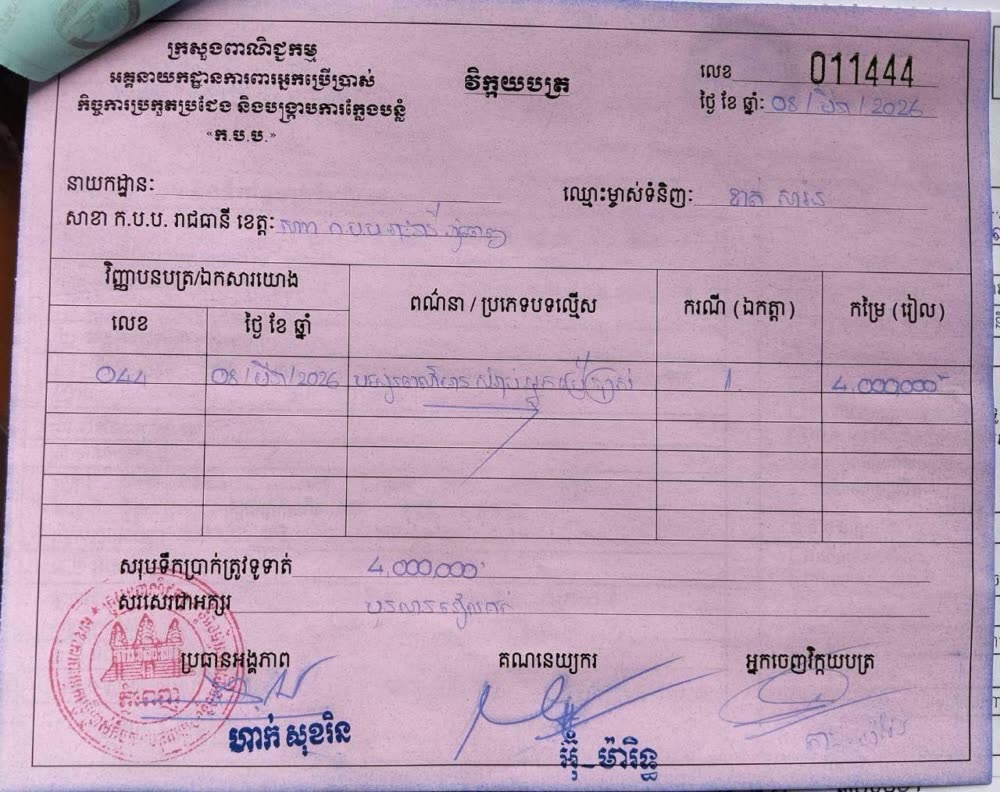 ក្រសួងពាណិជ្ជកម្ម
អគ្គនាយកដ្ឋានការពារអ្នកប្រើប្រាស់
កិច្ចការប្រកួតប្រជែង និងបង្ក្រាបការក្លែងបន្លំ
«ក.ប.ប.»
វិក្កយបត្រ
លេខ 011444
ថ្ងៃ ខែ ឆ្នាំ: 08 / មីនា / 2026
នាយកដ្ឋាន:
ឈ្មោះម្ចាស់ទំនិញ:
សាខា ក.ប.ប. រាជធានី ខេត្ត: សាខា ក.ប.ប រាជធានី ភ្នំពេញ
វិញ្ញាបនបត្រ/ឯកសារយោង
ពណ៌នា / ប្រភេទបទល្មើស
ករណី (ឯកត្តា)
កម្រៃ (រៀល)
លេខ
ថ្ងៃ ខែ ឆ្នាំ
044 08 / មីនា / 2026 អ្នកប្រើប្រាស់ 1 4.000.000
សរុបទឹកប្រាក់ត្រូវទូទាត់ 4.000.000
សរសេរជាអក្សរ បួនលានរៀលគត់
ប្រធានអង្គភាព
គណនេយ្យករ
អ្នកចេញវិក្កយបត្រ
ភ្នំពេញ
ហាក់ សុខរិន
អ៊ុំ ម៉ារិទ្ធ